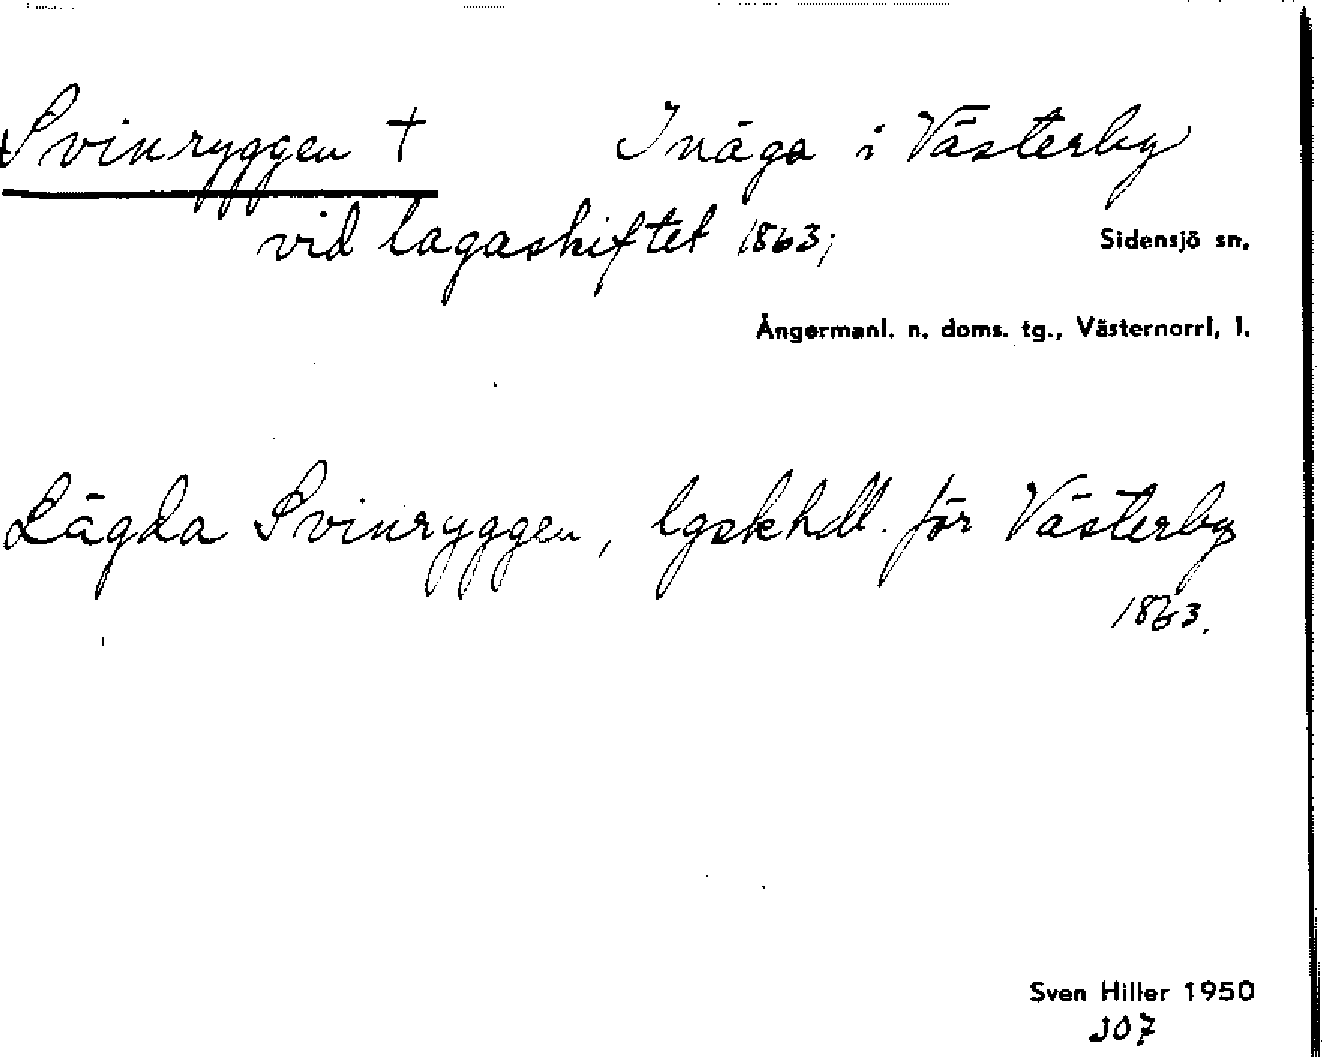 Svinryggen † Inäga i Västerby
vid lagaskiftet 1863;
Sidensjö sn.
Ångermanl. n. doms. tg., Västernorrl. l.
Lägda Svinryggen, lgskhdl. för Västerby
1863.
Sven Hiller 1950
JO7